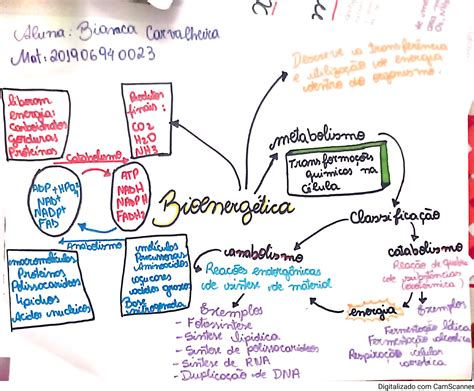 Aluna: Bianca Carvalheira
Mat: 201906940023
Descreve a transferência
e utilização de energia
dentro do organismo.
liberam
energia:
Carboidratos
Gorduras
Proteínas
Produtos
finais:
CO2
H2O
NH3
Catabolismo
ADP + HPO4
NAD+
NADP+
FAD
ATP
NADH
NADPH
FADH2
Anabolismo
macromoléculas
Proteínas
Polissacarídeos
Lipídios
Ácidos nucleicos
moléculas
Precursoras
Aminoácidos
açúcares
ácidos graxos
Base
nitrogenada
Bioenergética
metabolismo
Transformações
químicas na
célula
Classificação
anabolismo
Reações endergônicas
de síntese de material
Exemplos
- Fotossíntese
- Síntese lipídica
- Síntese de polissacarídeos
- Síntese de RNA
- Duplicação de DNA
catabolismo
Reação de quebra
de substâncias
energia
Exemplos
Fermentação lática
Fermentação alcoólica
Respiração celular
Digitalizado com CamScanner